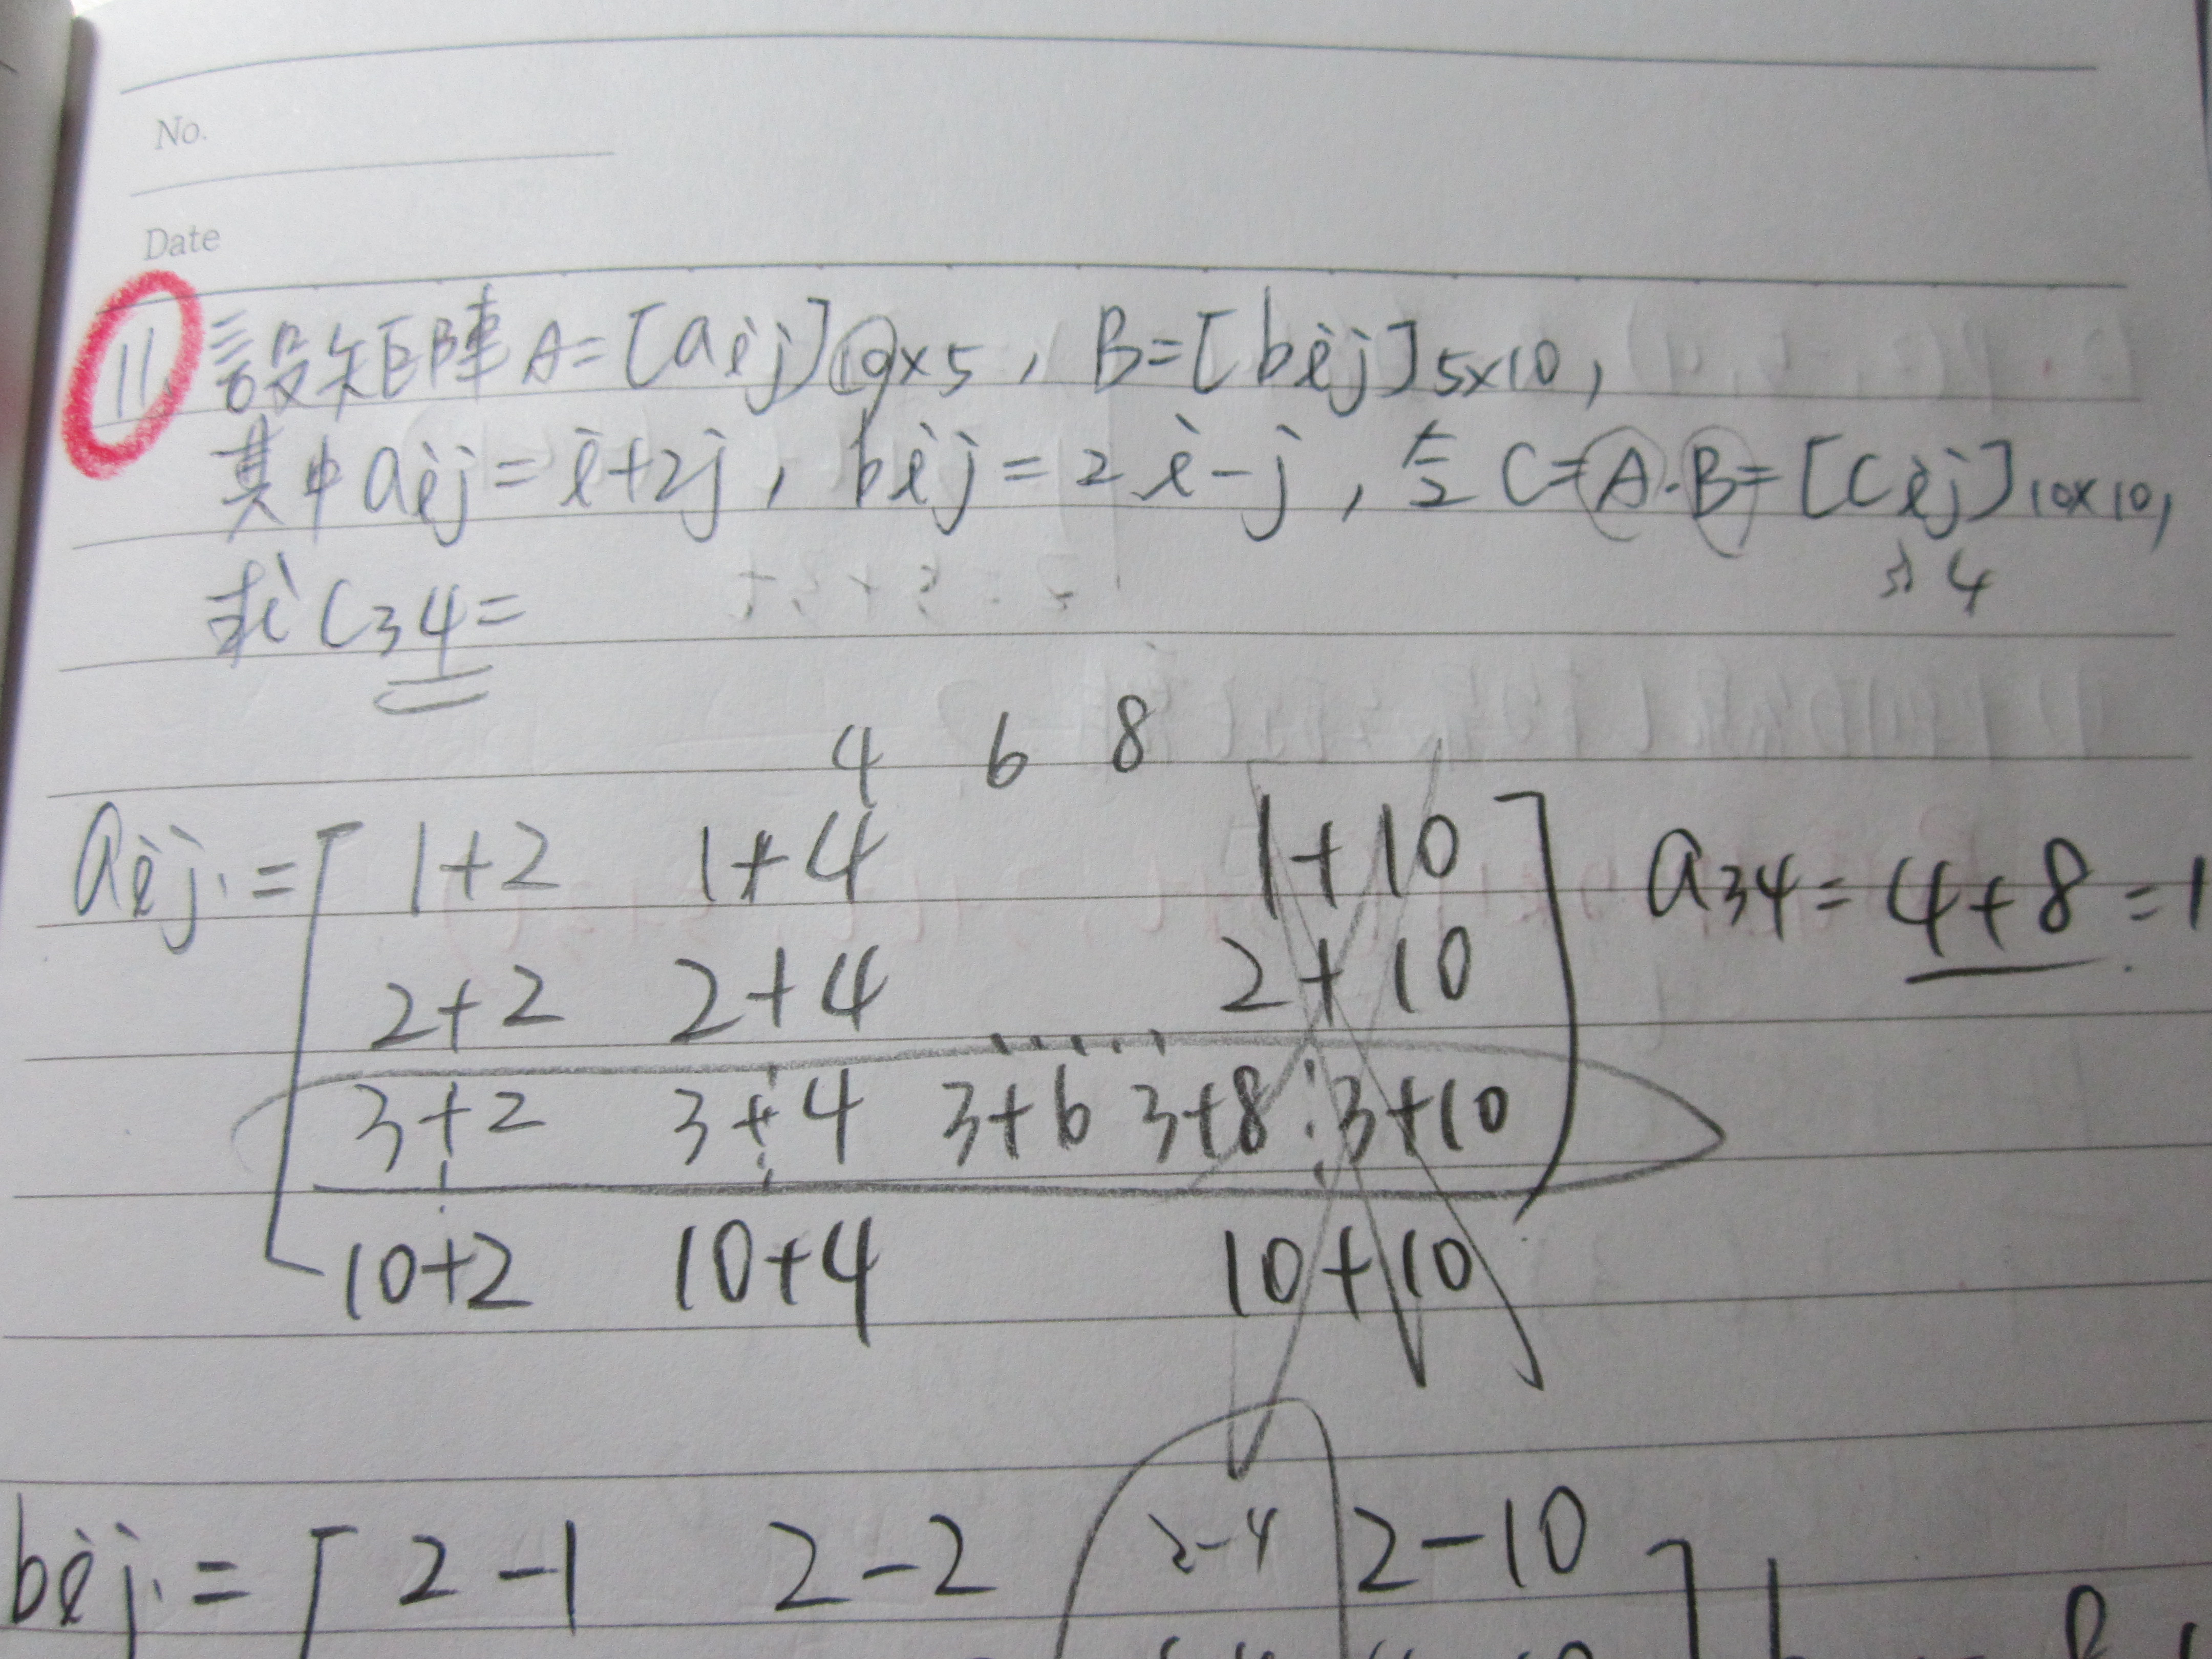 No.
Date
11 設矩陣 A=[aij]10×5, B=[bij]5×10,
其中 aij=i+2j, bij=2i-j, 令 C=A·B=[Cij]10×10,
3 4
求 C34=
4 6 8
aij=[ 1+2 1+4 1+10 ] a34=4+8=1
2+2 2+4 2+10
......
3+2 3+4 3+6 3+8 3+10
10+2 10+4 10+10
bij=[ 2-1 2-2 2-4 2-10 ]